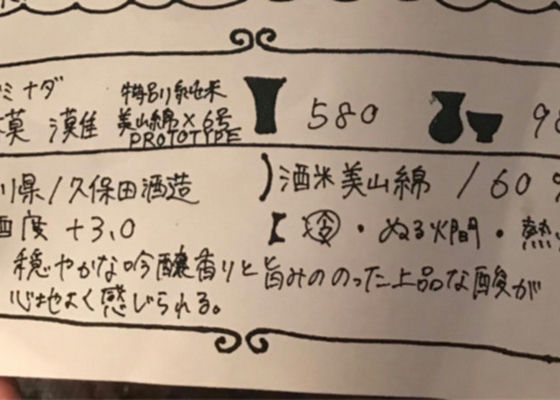 ミナダ 特別純米
漠 美山錦×6号 580
PROTOTYPE
川県/久保田酒造 酒米美山綿/60
酒度 +3.0 冷・ぬる燗・熱
穏やかな吟醸香りと旨みののった上品な酸が
心地よく感じられる。